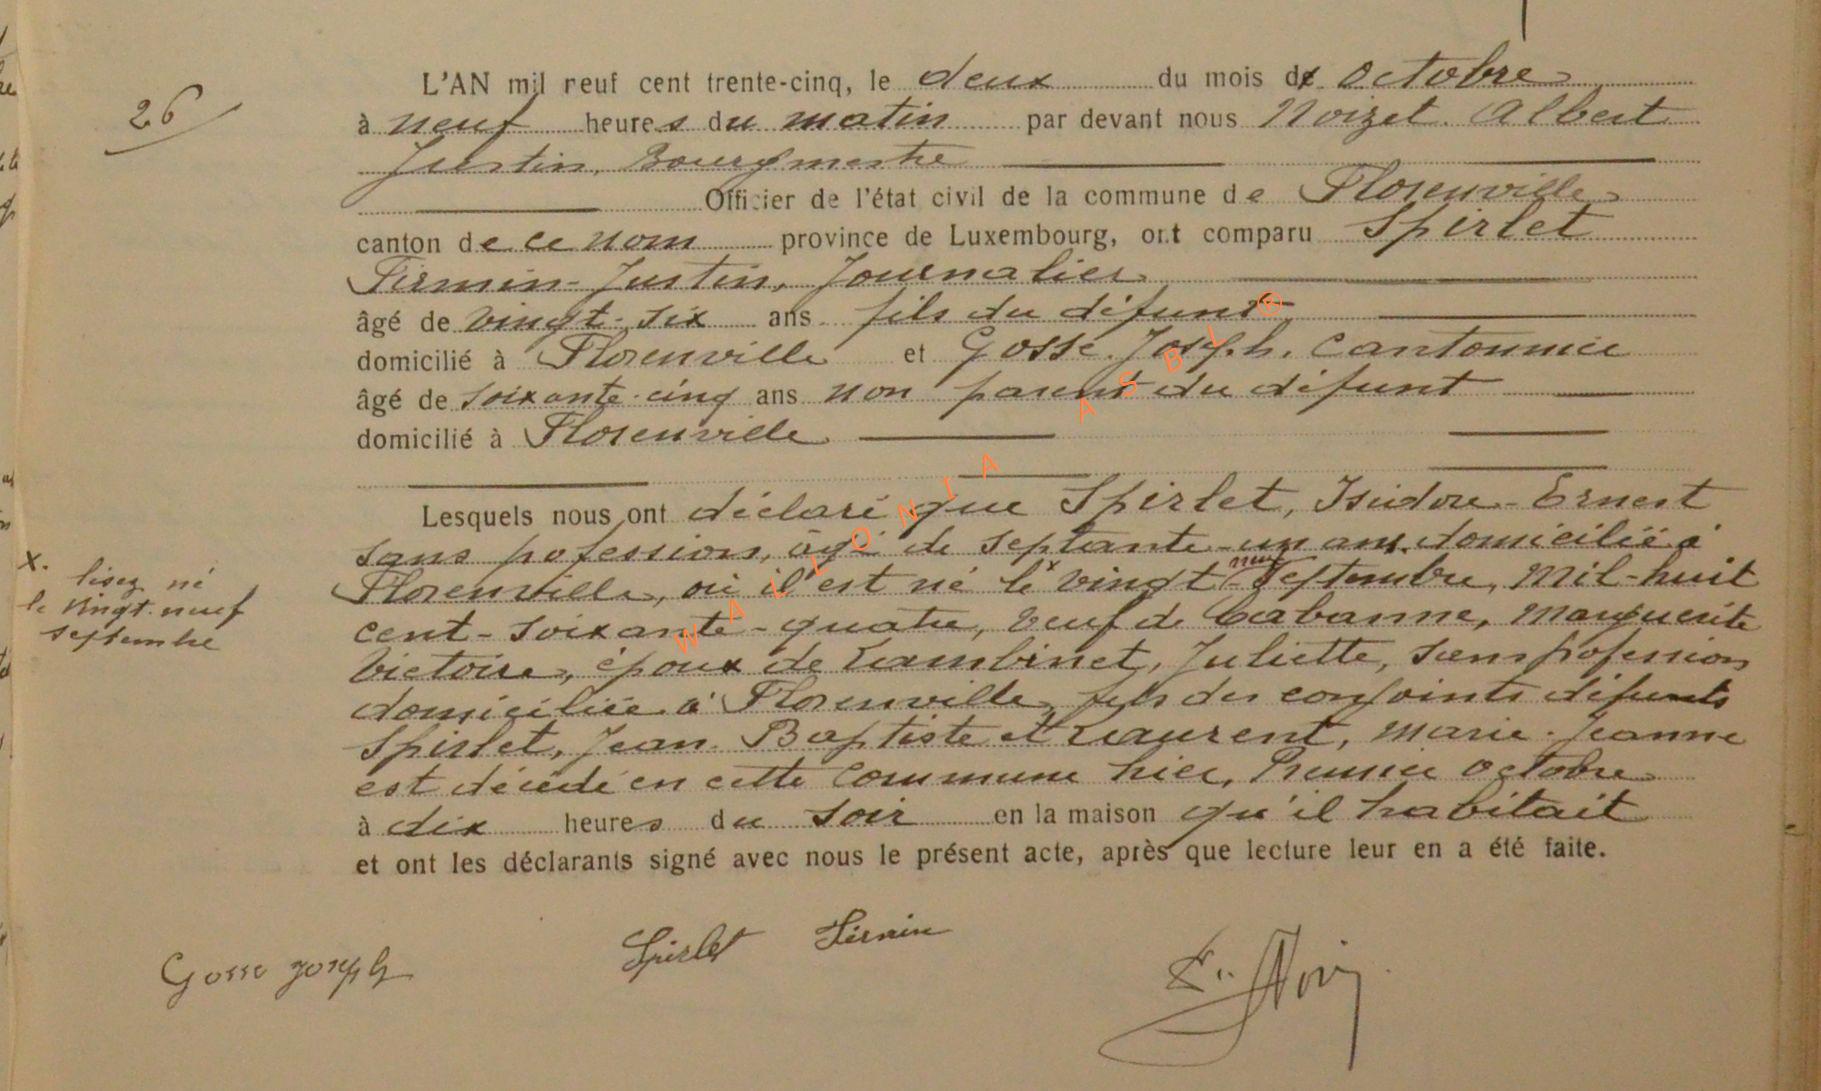 26
L'AN mil neuf cent trente-cinq, le deux du mois d'octobre
à neuf heures du matin par devant nous Noizet Albert
Justin, Bourgmestre
Officier de l'état civil de la commune de Florenville
canton de ce nom province de Luxembourg, ont comparu Spirlet
Firmin-Justin, Journalier
âgé de vingt-six ans fils du défunt
domicilié à Florenville et Gosse Joseph, cantonnier
âgé de soixante-cinq ans non parent du défunt
domicilié à Florenville
Lesquels nous ont déclaré que Spirlet, Isidore-Ernest
sans profession, âgé de septante-un ans domicilié à
Florenville, où il est né le x vingt-neuf septembre, mil-huit
cent-soixante-quatre, veuf de Cabanne, Marguerite
Victoire, époux de Lambinet, Juliette, sans profession
domiciliée à Florenville fils des conjoints défunts
Spirlet, Jean Baptiste et Laurent, Marie-Jeanne
est décédé en cette commune hier, Premier octobre
à dix heures du soir en la maison qu'il habitait
et ont les déclarants signé avec nous le présent acte, après que lecture leur en a été faite.
x. lisez né
le vingt-neuf
septembre
Gosse joseph Spirlet Firmin
WALLONIA ASBL ©